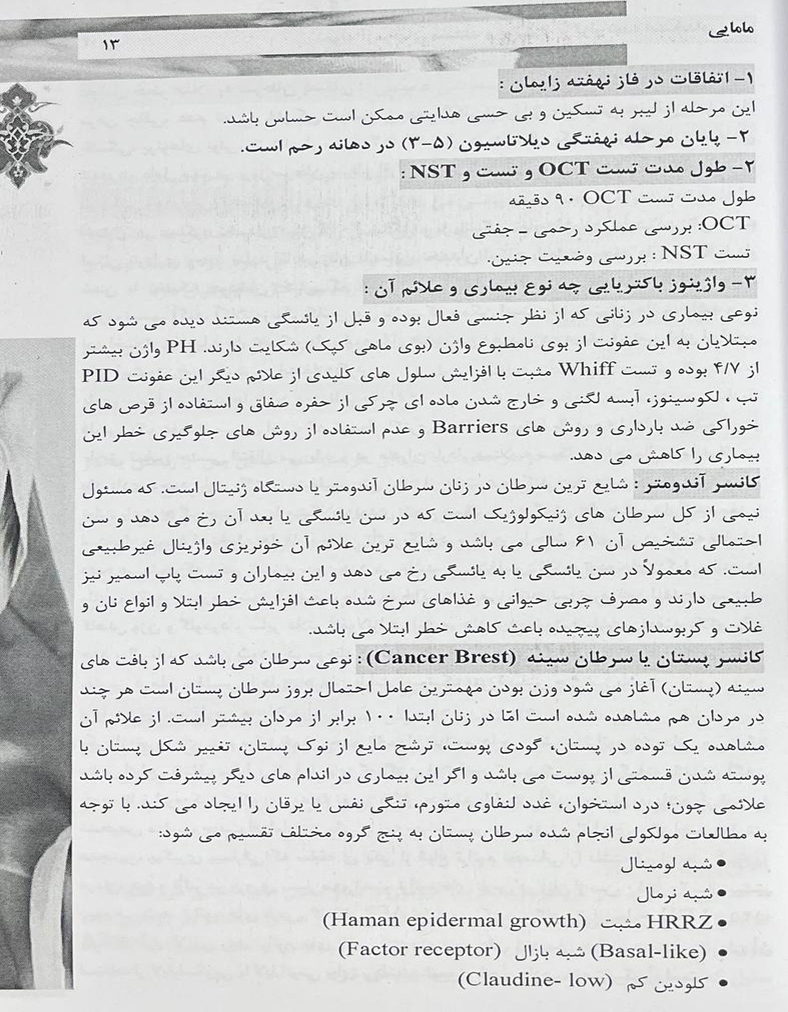 مامایی
۱۳
۱- اتفاقات در فاز نهفته زایمان :
این مرحله از لیبر به تسکین و بی حسی هدایتی ممکن است حساس باشد.
۲- پایان مرحله نهفتگی دیلاتاسیون (۵-۳) در دهانه رحم است.
۲- طول مدت تست OCT و تست و NST :
طول مدت تست OCT ۹۰ دقیقه
OCT: بررسی عملکرد رحمی – جفتی
تست NST : بررسی وضعیت جنین.
۳- واژینوز باکتریایی چه نوع بیماری و علائم آن :
نوعی بیماری در زنانی که از نظر جنسی فعال بوده و قبل از یائسگی هستند دیده می شود که
مبتلایان به این عفونت از بوی نامطبوع واژن (بوی ماهی کپک) شکایت دارند. PH واژن بیشتر
از ۴/۷ بوده و تست Whiff مثبت با افزایش سلول های کلیدی از علائم دیگر این عفونت PID
تب ، لکوسینوز، آبسه لگنی و خارج شدن ماده ای چرکی از حفره صفاق و استفاده از قرص های
خوراکی ضد بارداری و روش های Barriers و عدم استفاده از روش های جلوگیری خطر این
بیماری را کاهش می دهد.
کانسر آندومتر : شایع ترین سرطان در زنان سرطان آندومتر یا دستگاه ژنیتال است. که مسئول
نیمی از کل سرطان های ژنیکولوژیک است که در سن یائسگی یا بعد آن رخ می دهد و سن
احتمالی تشخیص آن ۶۱ سالی می باشد و شایع ترین علائم آن خونریزی واژینال غیرطبیعی
است. که معمولاً در سن یائسگی یا به یائسگی رخ می دهد و این بیماران و تست پاپ اسمیر نیز
طبیعی دارند و مصرف چربی حیوانی و غذاهای سرخ شده باعث افزایش خطر ابتلا و انواع نان و
غلات و کربوسدازهای پیچیده باعث کاهش خطر ابتلا می باشد.
کانسر پستان یا سرطان سینه (Cancer Brest) : نوعی سرطان می باشد که از بافت های
سینه (پستان) آغاز می شود وزن بودن مهمترین عامل احتمال بروز سرطان پستان است هر چند
در مردان هم مشاهده شده است امّا در زنان ابتدا ۱۰۰ برابر از مردان بیشتر است. از علائم آن
مشاهده یک توده در پستان، گودی پوست، ترشح مایع از نوک پستان، تغییر شکل پستان با
پوسته شدن قسمتی از پوست می باشد و اگر این بیماری در اندام های دیگر پیشرفت کرده باشد
علائمی چون؛ درد استخوان، غدد لنفاوی متورم، تنگی نفس یا یرقان را ایجاد می کند. با توجه
به مطالعات مولکولی انجام شده سرطان پستان به پنج گروه مختلف تقسیم می شود:
• شبه لومینال
• شبه نرمال
• HRRZ مثبت (Haman epidermal growth)
• (Basal-like) شبه بازال (Factor receptor)
• کلودین کم (Claudine- low)